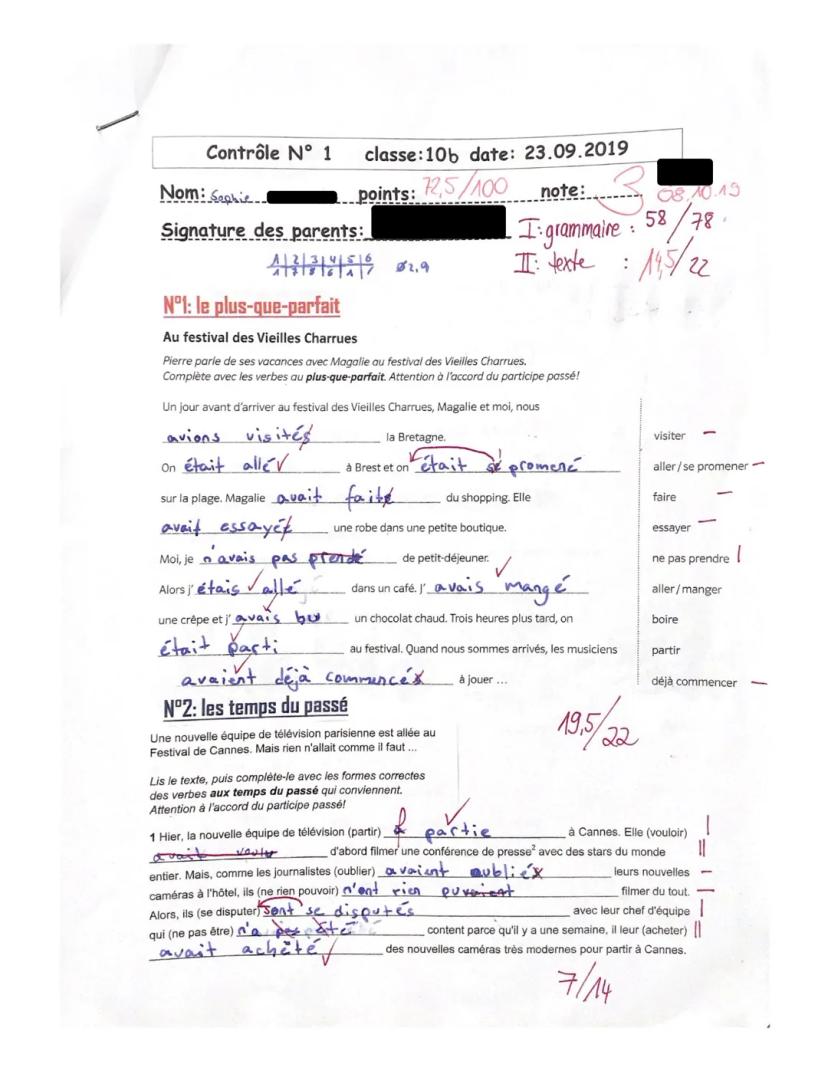 Contrôle N° 1 classe:10b date: 23.09.2019
Nom: Sophie points: 72,5/100 note: 3 08.10.19
Signature des parents: I: grammaire : 58/78
1|2|3|4|5|6 ø2,9 II: texte : 14,5/22
N°1: le plus-que-parfait
Au festival des Vieilles Charrues
Pierre parle de ses vacances avec Magalie au festival des Vieilles Charrues.
Complète avec les verbes au plus-que-parfait. Attention à l'accord du participe passé!
Un jour avant d'arriver au festival des Vieilles Charrues, Magalie et moi, nous
avions visités la Bretagne. visiter
On était allé à Brest et on était se promené aller/se promener
sur la plage. Magalie avait faite du shopping. Elle faire
avait essayée une robe dans une petite boutique. essayer
Moi, je n'avais pas prendé de petit-déjeuner. ne pas prendre
Alors j' étais allé dans un café. J' avais mangé aller/manger
une crêpe et j' avais bu un chocolat chaud. Trois heures plus tard, on boire
était parti au festival. Quand nous sommes arrivés, les musiciens partir
avaient déjà commencés à jouer ... déjà commencer
N°2: les temps du passé
19,5/22
Une nouvelle équipe de télévision parisienne est allée au
Festival de Cannes. Mais rien n'allait comme il faut ...
Lis le texte, puis complète-le avec les formes correctes
des verbes aux temps du passé qui conviennent.
Attention à l'accord du participe passé!
1 Hier, la nouvelle équipe de télévision (partir) partie à Cannes. Elle (vouloir)
avait voulu d'abord filmer une conférence de presse² avec des stars du monde
entier. Mais, comme les journalistes (oublier) avaient oubliés leurs nouvelles
caméras à l'hôtel, ils (ne rien pouvoir) n'ont rien puvaient filmer du tout.
Alors, ils (se disputer) sont se disputés avec leur chef d'équipe
qui (ne pas être) n'a pas été content parce qu'il y a une semaine, il leur (acheter)
avait achêté des nouvelles caméras très modernes pour partir à Cannes.
7/14